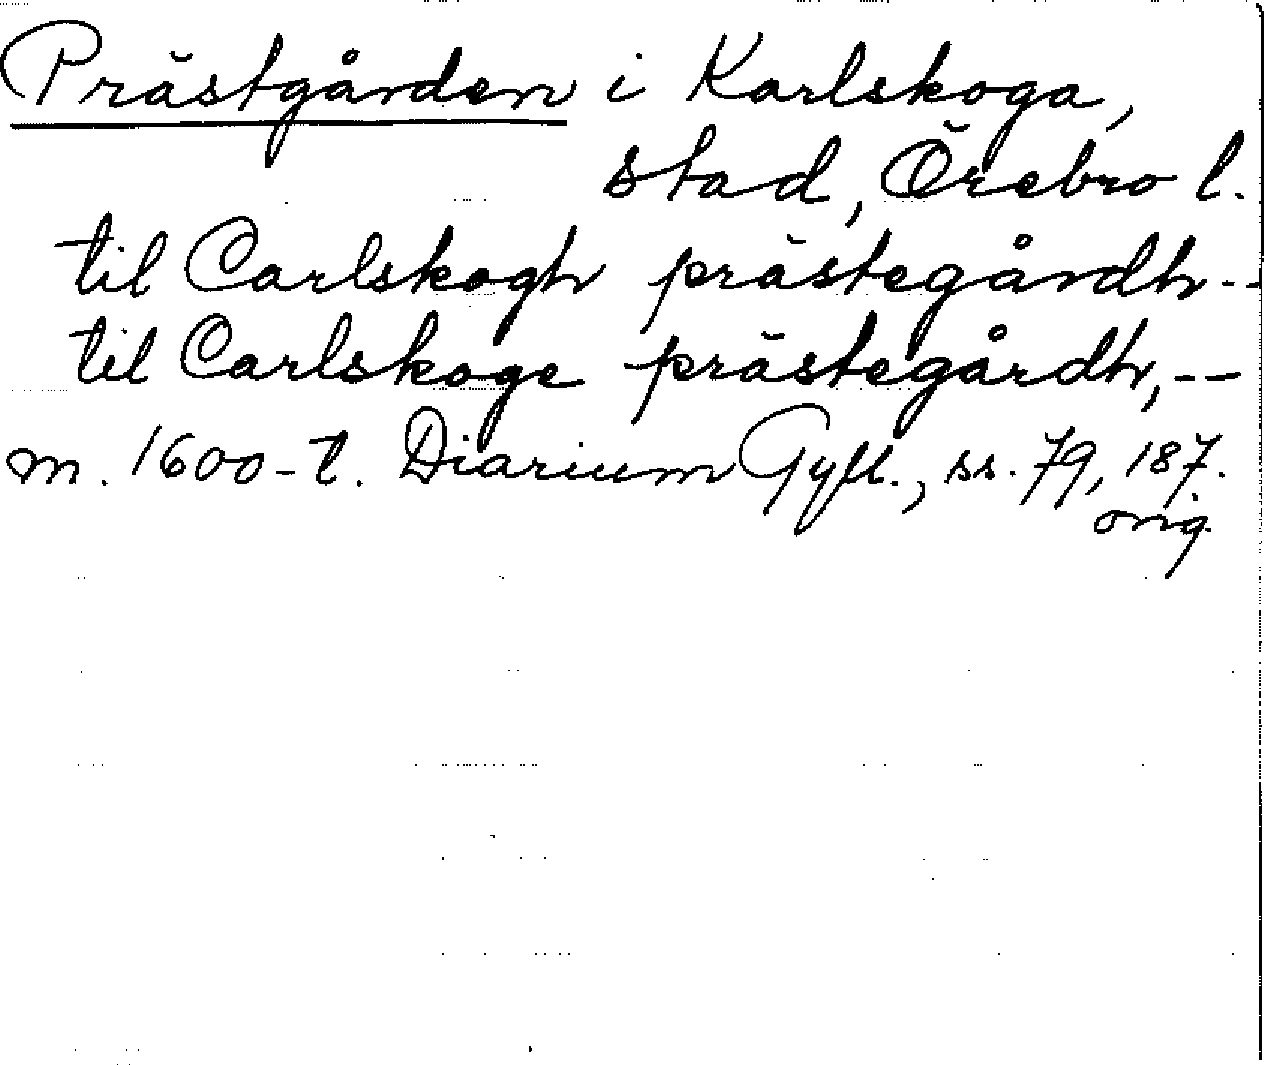 Prästgården i Karlskoga,
stad, Örebro l.
til Carlskogh prästegårdh --
til Carlskoge prästegårdh, --
m. 1600-t. Diarium Gyll., ss. 79, 187.
orig.